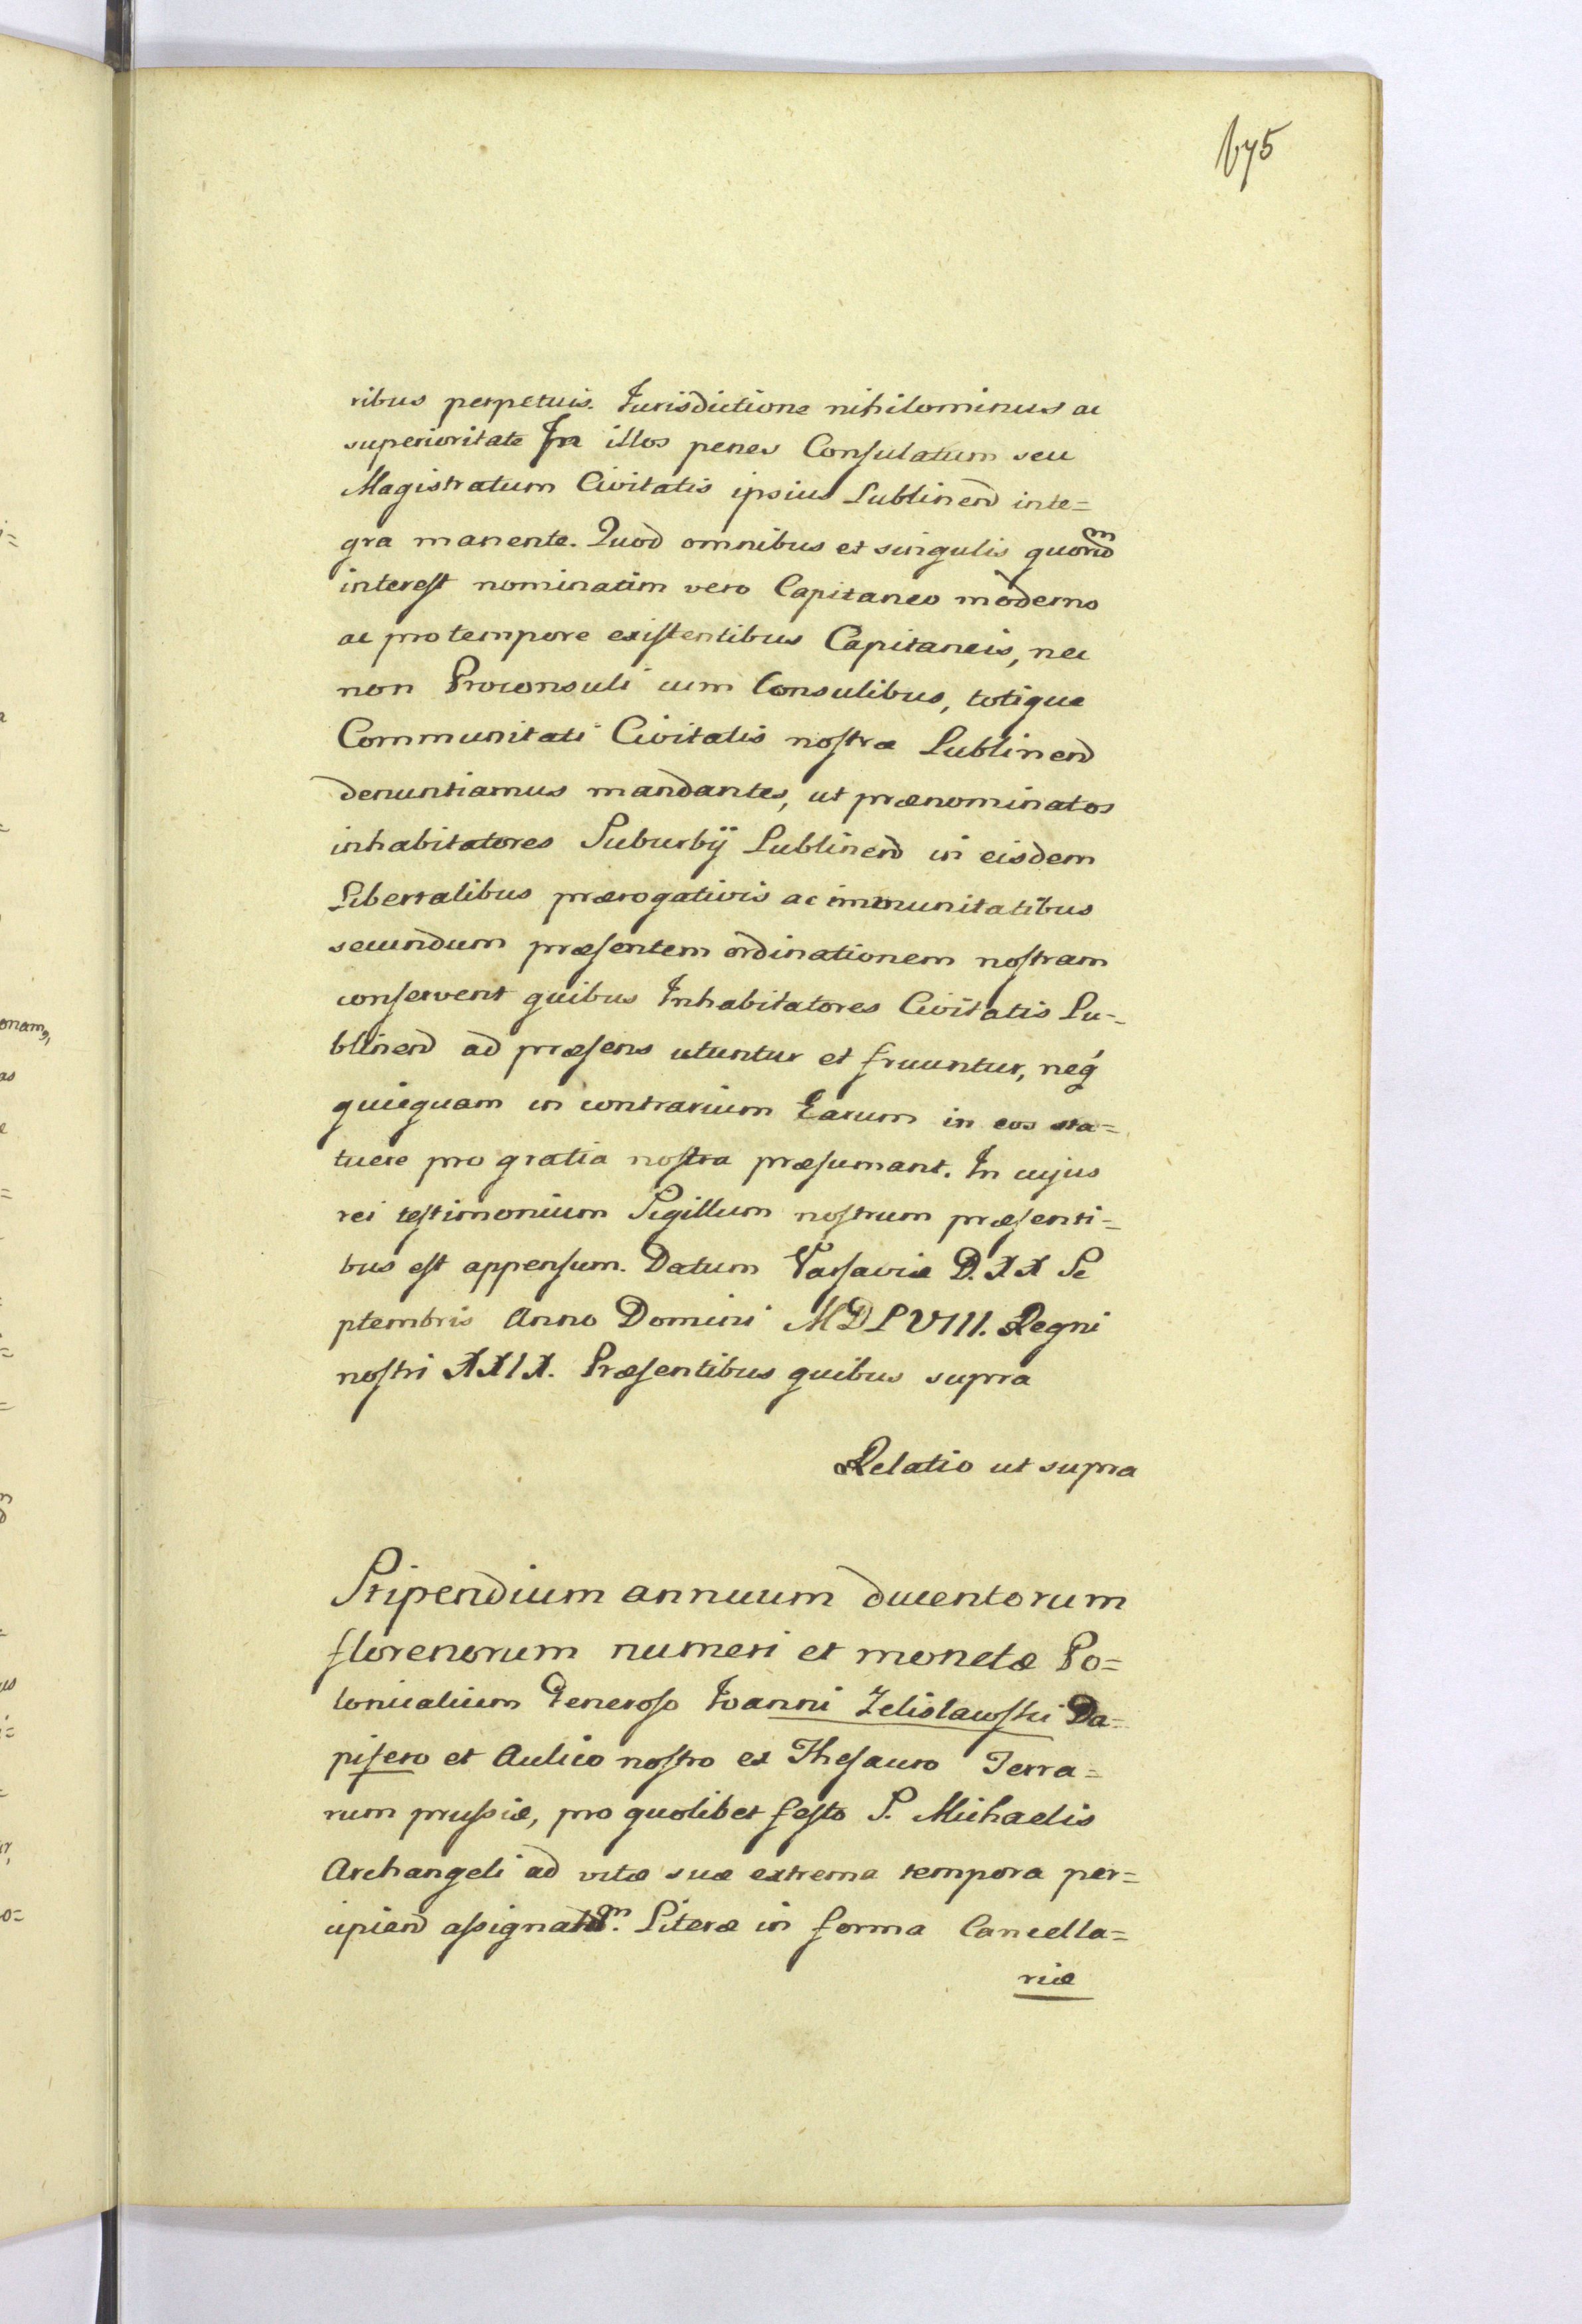 675
ribus perpetuis. Jurisdictione nihilominus ac
superioritate In illos penes Consulatum seu
Magistratum Civitatis ipsius Lublinend inte=
gra manente. Quod omnibus et singulis quor̃m
interest nominatim vero Capitaneo moderno
ac pro tempore existentibus Capitaneis, nec
non Proconsuli cum Consulibus, totique
Communitati Civitatis nostræ Lublinend
denuntiamus mandantes, ut prænominatos
inhabitatores Suburbij Lublinend in eisdem
Libertatibus prærogativis ac immunitatibus
secundum præsentem ordinationem nostram
conservent quibus Inhabitatores Civitatis Lu=
blinend ad præsens utuntur et fruuntur, neq́
quicquam in contrarium Earum in eos sta=
tuere pro gratia nostra præsumant. In cujus
rei testimonium Sigillum nostrum præsenti=
bus est appensum. Datum Varsaviæ D. XX Se
ptembris Anno Domini MDLVIII. Regni
nostri XXIX. Præsentibus quibus supra
Relatio ut supra
Stipendium annuum ducentorum
florenorum numeri et monetæ Po=
lonicalium Generoso Joanni Zelislawski Da=
pifero et Aulico nostro ex Thesauro Terra=
rum prussiæ, pro quolibet festo S. Michaelis
Archangeli ad vitæ suæ extrema tempora per=
cipiend assignat. Literæ in forma Cancella=
riæ